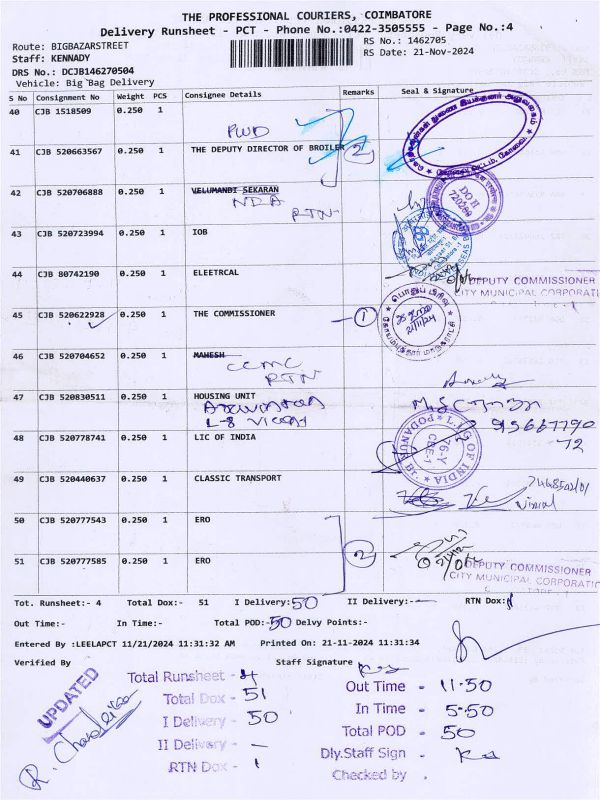 THE PROFESSIONAL COURIERS, COIMBATORE
Delivery Runsheet - PCT - Phone No.:0422-3505555 - Page No.:4
Route: BIGBAZARSTREET
RS No.: 1462705
Staff: KENNADY
RS Date: 21-Nov-2024
DRS No.: DCJB146270504
Vehicle: Big Bag Delivery
S No Consignment No Weight PCS Consignee Details Remarks Seal & Signature
40 CJB 1518509 0.250 1
PWD
41 CJB 520663567 0.250 1 THE DEPUTY DIRECTOR OF BROILER 2
42 CJB 520706888 0.250 1 VELUMANBI SEKARAN
NDA
RTN
43 CJB 520723994 0.250 1 IOB
44 CJB 80742190 0.250 1 ELEETRCAL
DEPUTY COMMISSIONER
CITY MUNICIPAL CORPORATI
45 CJB 520622928 0.250 1 THE COMMISSIONER 1
பொதுப் பிரிவு
21/11/24
46 CJB 520704652 0.250 1 MAHESH
CCMC
RTN
47 CJB 520830511 0.250 1 HOUSING UNIT
48 CJB 520778741 0.250 1 LIC OF INDIA
L.I.C. OF INDIA
PODANUR BR.
76-Y
CBE-1
49 CJB 520440637 0.250 1 CLASSIC TRANSPORT
50 CJB 520777543 0.250 1 ERO
51 CJB 520777585 0.250 1 ERO 2
DEPUTY COMMISSIONER
CITY MUNICIPAL CORPORATIO
Tot. Runsheet:- 4 Total Dox:- 51 I Delivery:50 II Delivery:- RTN Dox:1
Out Time:- In Time:- Total POD:-50 Delvy Points:-
Entered By :LEELAPCT 11/21/2024 11:31:32 AM Printed On: 21-11-2024 11:31:34
Verified By Staff Signature
UPDATED
Total Runsheet - 4
Total Dox - 51
I Delivery - 50
II Delivery - -
RTN Dox - 1
Out Time - 11-50
In Time - 5-50
Total POD - 50
Dly.Staff Sign -
Checked by .